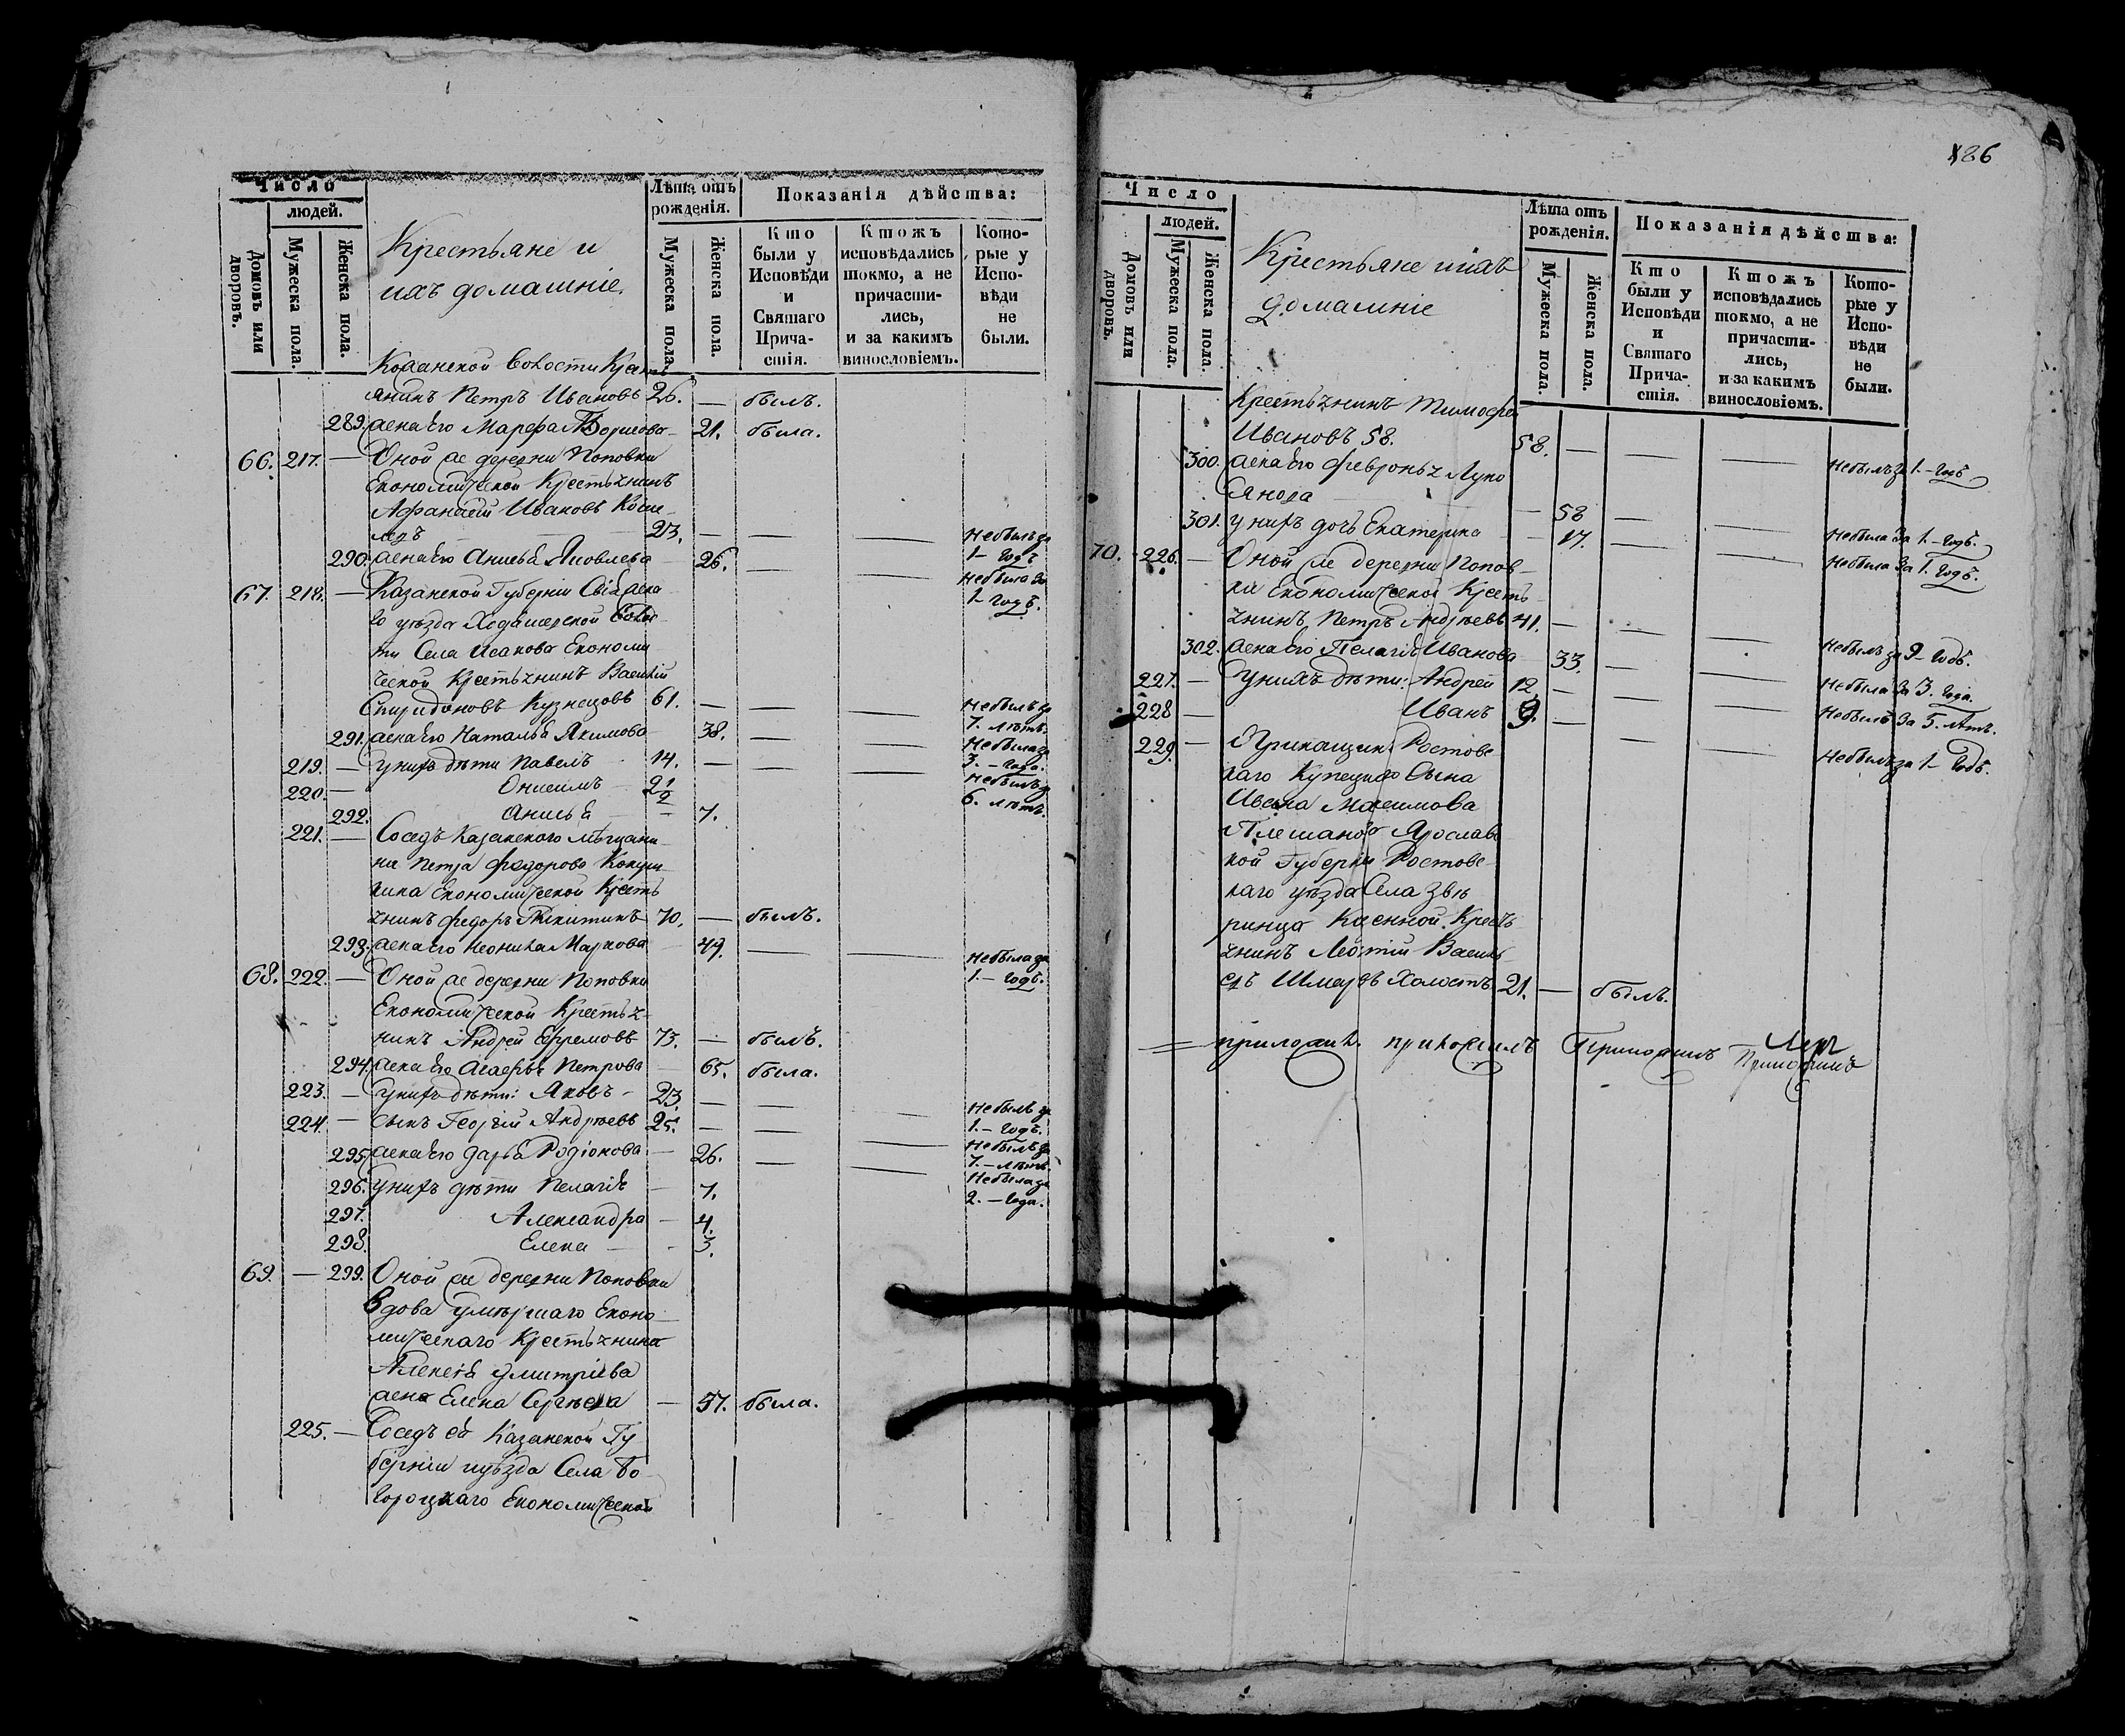 Число
людей.
Домовъ или дворовъ.
Мужеска пола.
Женска пола.
Крестьяне и
ихъ домашніе.
Лѣта отъ
рожденія.
Мужеска пола.
Женска пола.
Показанія дѣйства:
Кто были у Исповѣди и Святаго Причастія.
Ктожъ исповѣдались токмо, а не причастились, и за какимъ винословіемъ.
Которые у Исповѣди не были.
волости Кресть
янинъ Петръ Ивановъ 26. — былъ.
289. жена Его Марфа Борисова 21. была.
66. 217. — Оной же деревни Поповки
Економической Крестьянинъ
Афанасій Ивановъ
23. — небылъ за 1 — годъ
290. жена Его Анисья Яковлева 26. небыла за 1 — годъ.
67. 218. — Казанской Губерніи Свіяжска
го уѣзда волос
ти Села Исакова Економи
ческой Крестьянинъ Василій
Спиридоновъ Кузнецовъ 61. — небылъ за 7. лѣтъ.
291. жена Его Наталья Якимова 38. небыла за 3. — года.
219. — у нихъ дѣти Павелъ 14. — небылъ за 6. лѣтъ.
220. — Онисимъ 2 1/2
292. Анисья — 7.
221. — Соседъ Казанского мѣщани
на Петра Федорова
Економической Кресть
янинъ Федоръ Никитинъ 70. — былъ.
293. жена Его Неонила Маркова — 49. небыла за 1. — годъ.
68. 222. — Оной же деревни Поповки
Економической Крестья
нинъ Андрей Ефремовъ 73. — былъ.
294. жена Его Агафья Петрова — 65. была.
223. — у нихъ дѣти: Яковъ — 23. — небылъ за 1. — годъ.
224. — сынъ Георгій Андрѣевъ 25. — небылъ за 7. — лѣтъ.
295. жена Его Дарья Родіонова — 26. небыла за 2. — года.
296. у нихъ дѣти Пелагія — 7.
297. Александра — 4.
298. Елена — 3.
69. — 299. Оной же деревни Поповки
вдова умѣршаго Еконо
мическаго Крестьянина
Алексѣя Дмитріева
жена Елена Сергѣева — 57. была.
225. — Соседъ ея Казанской Гу
берніи и уѣзда Села Бо
городцкаго Економической
186
Число
людей.
Домовъ или дворовъ.
Мужеска пола.
Женска пола.
Крестьяне и ихъ
домашніе
Лѣта отъ
рожденія.
Мужеска пола.
Женска пола.
Показанія дѣйства:
Кто были у Исповѣди и Святаго Причастія.
Ктожъ исповѣдались токмо, а не причастились, и за какимъ винословіемъ.
Которые у Исповѣди не были.
Крестьянинъ Тимофей
Ивановъ 58. 58. — небылъ за 1. — годъ
300. жена Его Февронья Луко
янова — 58 небыла за 1. — годъ.
301. у нихъ дочь Екатерина — 17. небыла за 1. годъ.
70. 226. — Оной же деревни Попов
ки Економической Кресть
янинъ Петръ Андрѣевъ 41. — небылъ за 9 — годъ.
302. жена Его Пелагія Иванова 33. небыла за 3. года.
227. — у нихъ дѣти: Андрей 12. — небылъ за 5. лѣтъ.
228 — Иванъ 9. — небылъ за 1 — годъ.
229. — Прикащикъ Ростовс
каго Купецкаго Сына
Ивана Максимова
Плешанова Ярославс
кой Губерніи Ростовс
каго уѣзда Села Звѣ
ринца Казенной Кресть
янинъ Леонтій Василь
евъ Холостъ 21. — былъ.